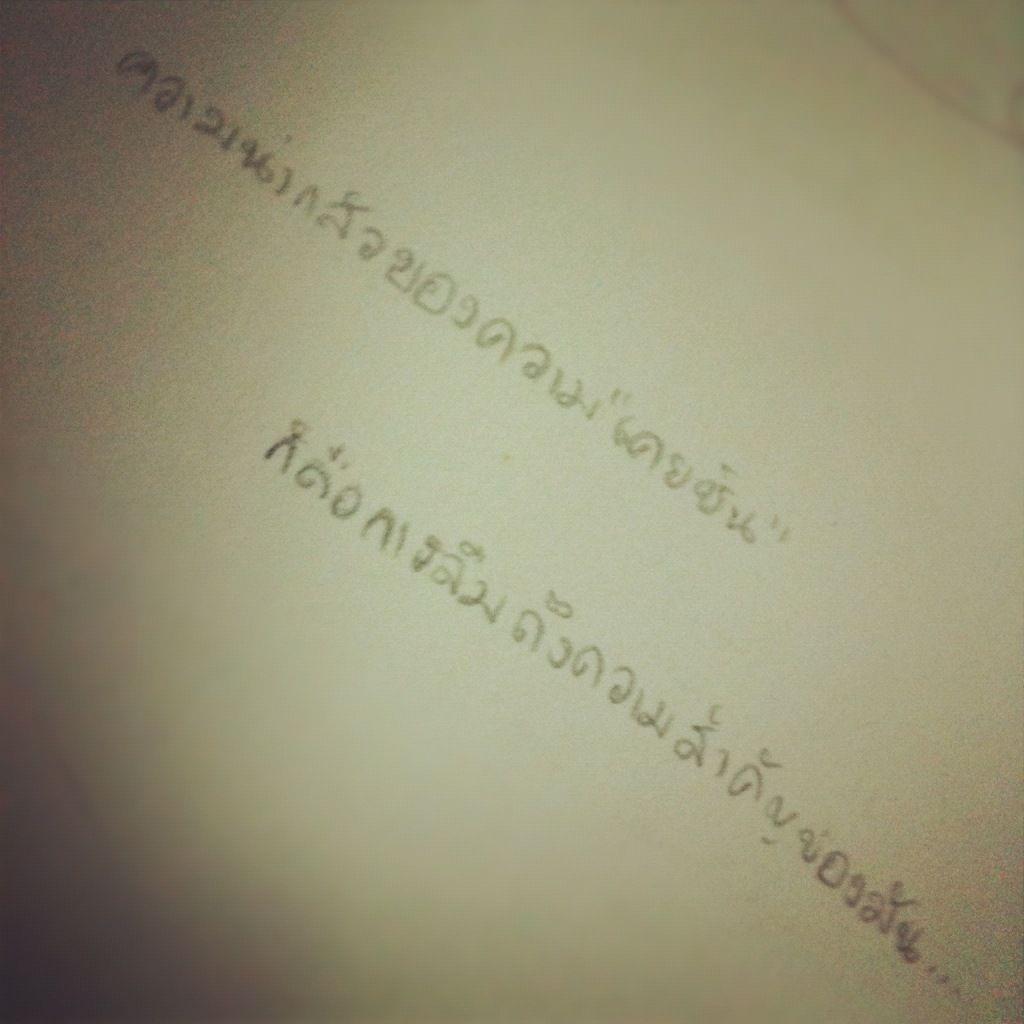 ความน่ากลัวของความ"เคยชิน"
ก็คือการลืมถึงความสำคัญของมัน...